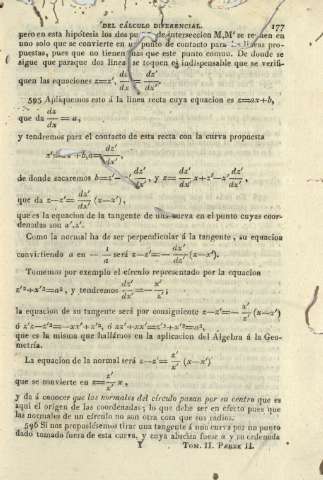 DEL CÁLCULO DIFERENCIAL. 177
pero en esta hipótesis los dos de interseccion M,M' se reunen en
uno solo que se convierte en un punto de contacto para las líneas pro-
puestas, pues que no tienen mas que este punto comun. De donde se
sigue que paraque dos lineas se toquen es indispensable que se verifi-
quen las equaciones z=z', dz/dx = dz'/dx'.
595 Apliquemos esto á la linea recta cuya equacion es z=ax+b,
que da dz/dx = a,
y tendremos para el contacto de esta recta con la curva propuesta
z'=ax'+b, a= dz'/dx',
de donde sacaremos b=z'- x' dz'/dx', y z= dz'/dx' x+z'-x' dz'/dx',
que da z-z'= dz'/dx' (x-x'),
que es la equacion de la tangente de una curva en el punto cuyas coor-
denadas son x',z'.
Como la normal ha de ser perpendicular á la tangente, su equacion
convirtiendo a en - 1/a será z-z'=- dx'/dz' (x-x').
Tomemos por exemplo el círculo representado por la equacion
z'²+x'²=a², y tendremos dz'/dx' =- x'/z';
la equacion de su tangente será por consiguiente z-z'=- x'/z' (x-x')
ó z'z-z'²=-xx'+x'², ó zz'+xx'=z'²+x'²=a²,
que es la misma que hallámos en la aplicacion del Algebra á la Geo-
metría.
La equacion de la normal será z-z'= z'/x' (x-x')
que se convierte en z= z'/x' x,
y da á conocer que las normales del círculo pasan por su centro que es
aquí el origen de las coordenadas; lo que debe ser en efecto pues que
las normales de un círculo no son otra cosa que sus radios.
596 Si nos propusiésemos tirar una tangente á una curva por un punto
dado tomado fuera de esta curva, y cuya abscisa fuese x y su ordenada
Y TOM. II. PARTE II.